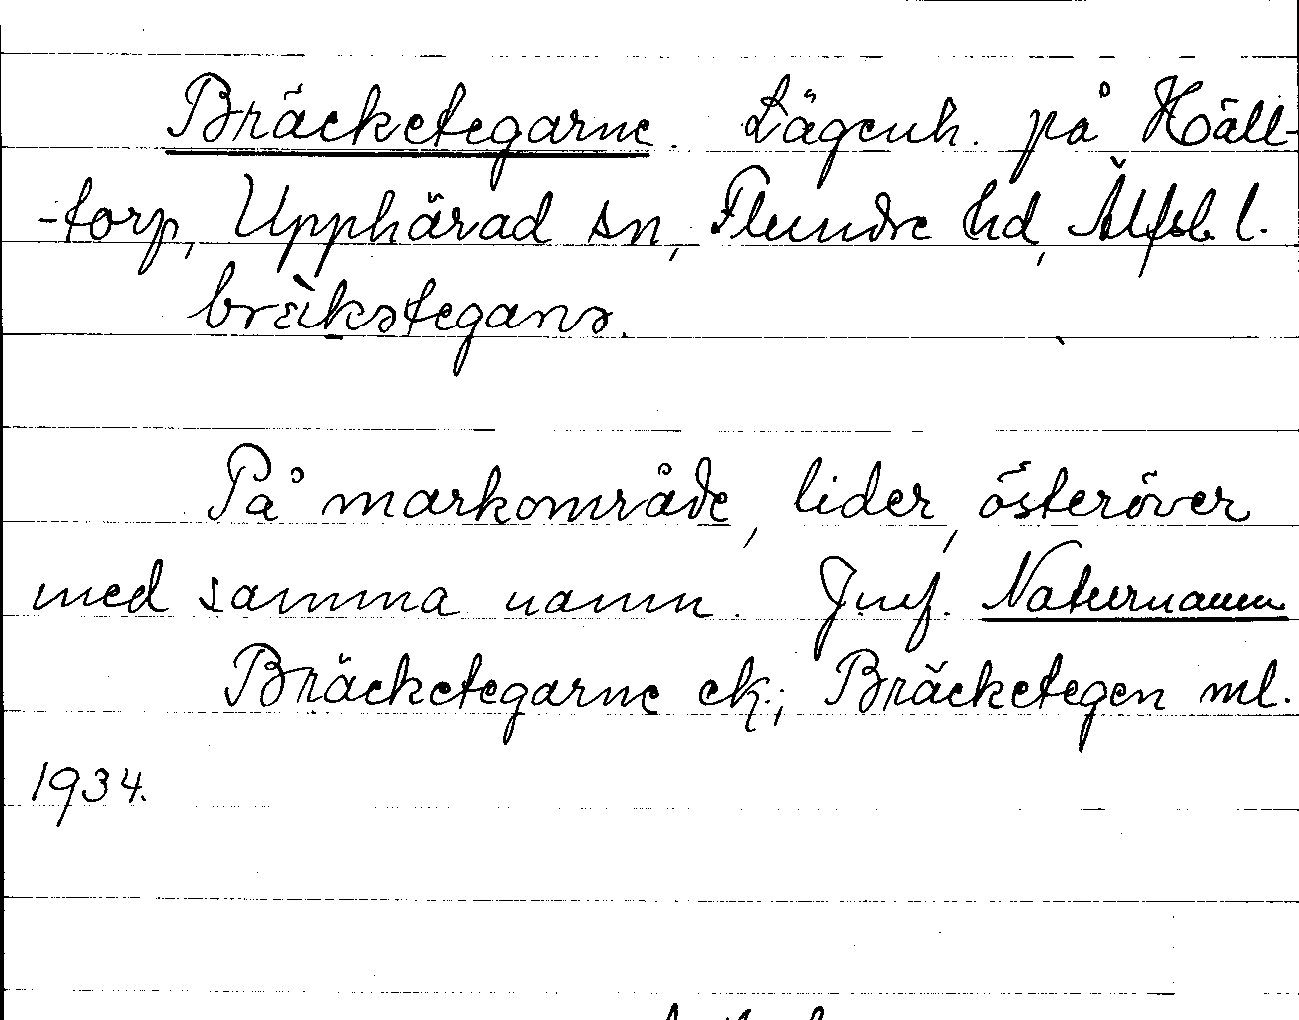 Bräcketegarne. Lägenh. på Häll-
-torp, Upphärad sn, Flundre hd, Älfsb. l.
bräkəteganə.
På markområde, lider, österöver
med samma namn. Jmf. Naturnamn
Bräcketegarne ek.; Bräcketegen ml.
1934.